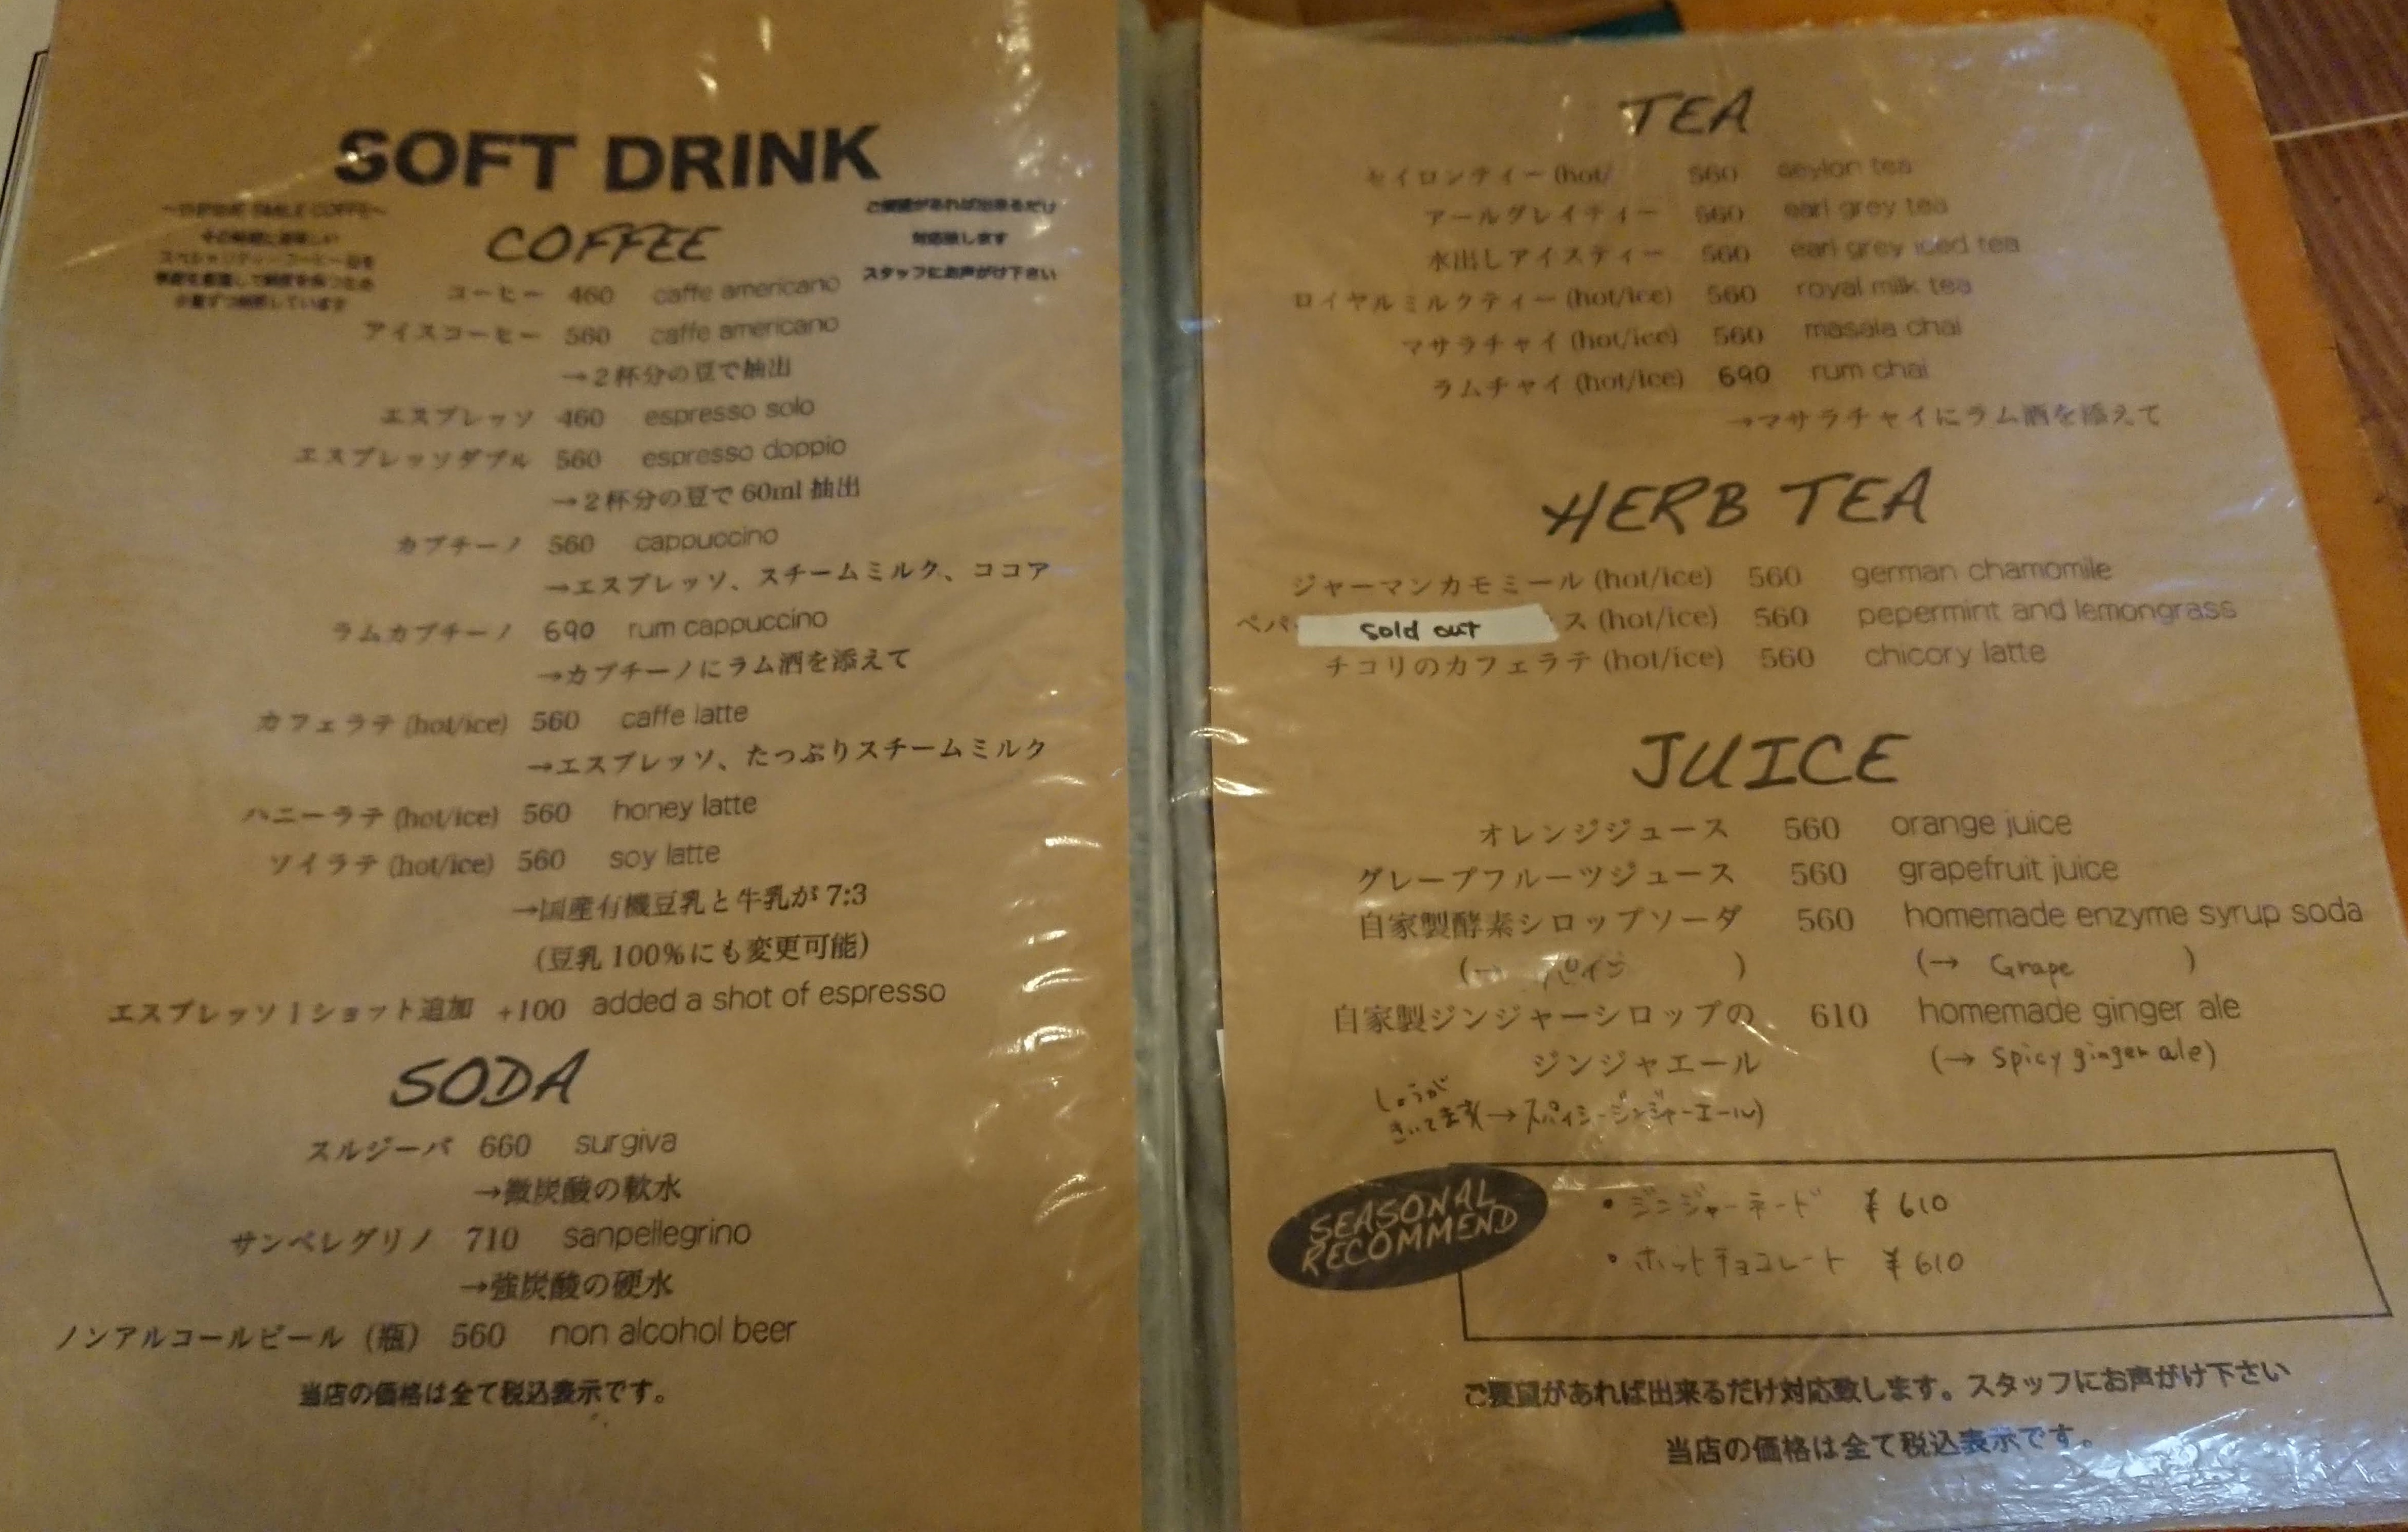 SOFT DRINK
COFFEE
ご要望があれば出来るだけ
対応致します
スタッフにお声がけ下さい
コーヒー 460 caffe americano
アイスコーヒー 560 caffe americano
→2杯分の豆で抽出
エスプレッソ 460 espresso solo
エスプレッソダブル 560 espresso doppio
→2杯分の豆で 60ml 抽出
カプチーノ 560 cappuccino
→エスプレッソ、スチームミルク、ココア
ラムカプチーノ 690 rum cappuccino
→カプチーノにラム酒を添えて
カフェラテ (hot/ice) 560 caffe latte
→エスプレッソ、たっぷりスチームミルク
ハニーラテ (hot/ice) 560 honey latte
ソイラテ (hot/ice) 560 soy latte
→国産有機豆乳と牛乳が 7:3
(豆乳 100%にも変更可能)
エスプレッソ1ショット追加 +100 added a shot of espresso
SODA
スルジーバ 660 surgiva
→微炭酸の軟水
サンペレグリノ 710 sanpellegrino
→強炭酸の硬水
ノンアルコールビール (瓶) 560 non alcohol beer
当店の価格は全て税込表示です。
TEA
セイロンティー (hot/ 560 ceylon tea
アールグレイティー 560 earl grey tea
水出しアイスティー 560 earl grey iced tea
ロイヤルミルクティー (hot/ice) 560 royal milk tea
マサラチャイ (hot/ice) 560 masala chai
ラムチャイ (hot/ice) 690 rum chai
→マサラチャイにラム酒を添えて
HERB TEA
ジャーマンカモミール (hot/ice) 560 german chamomile
ペパ sold out ス (hot/ice) 560 pepermint and lemongrass
チコリのカフェラテ (hot/ice) 560 chicory latte
JUICE
オレンジジュース 560 orange juice
グレープフルーツジュース 560 grapefruit juice
自家製酵素シロップソーダ 560 homemade enzyme syrup soda
(→ パイン ) (→ Grape )
自家製ジンジャーシロップの 610 homemade ginger ale
ジンジャエール (→ Spicy ginger ale)
しょうが
きいてます (→スパイシージンジャーエール)
SEASONAL
RECOMMEND
・ジンジャーネード ¥610
・ホットチョコレート ¥610
ご要望があれば出来るだけ対応致します。スタッフにお声がけ下さい
当店の価格は全て税込表示です。